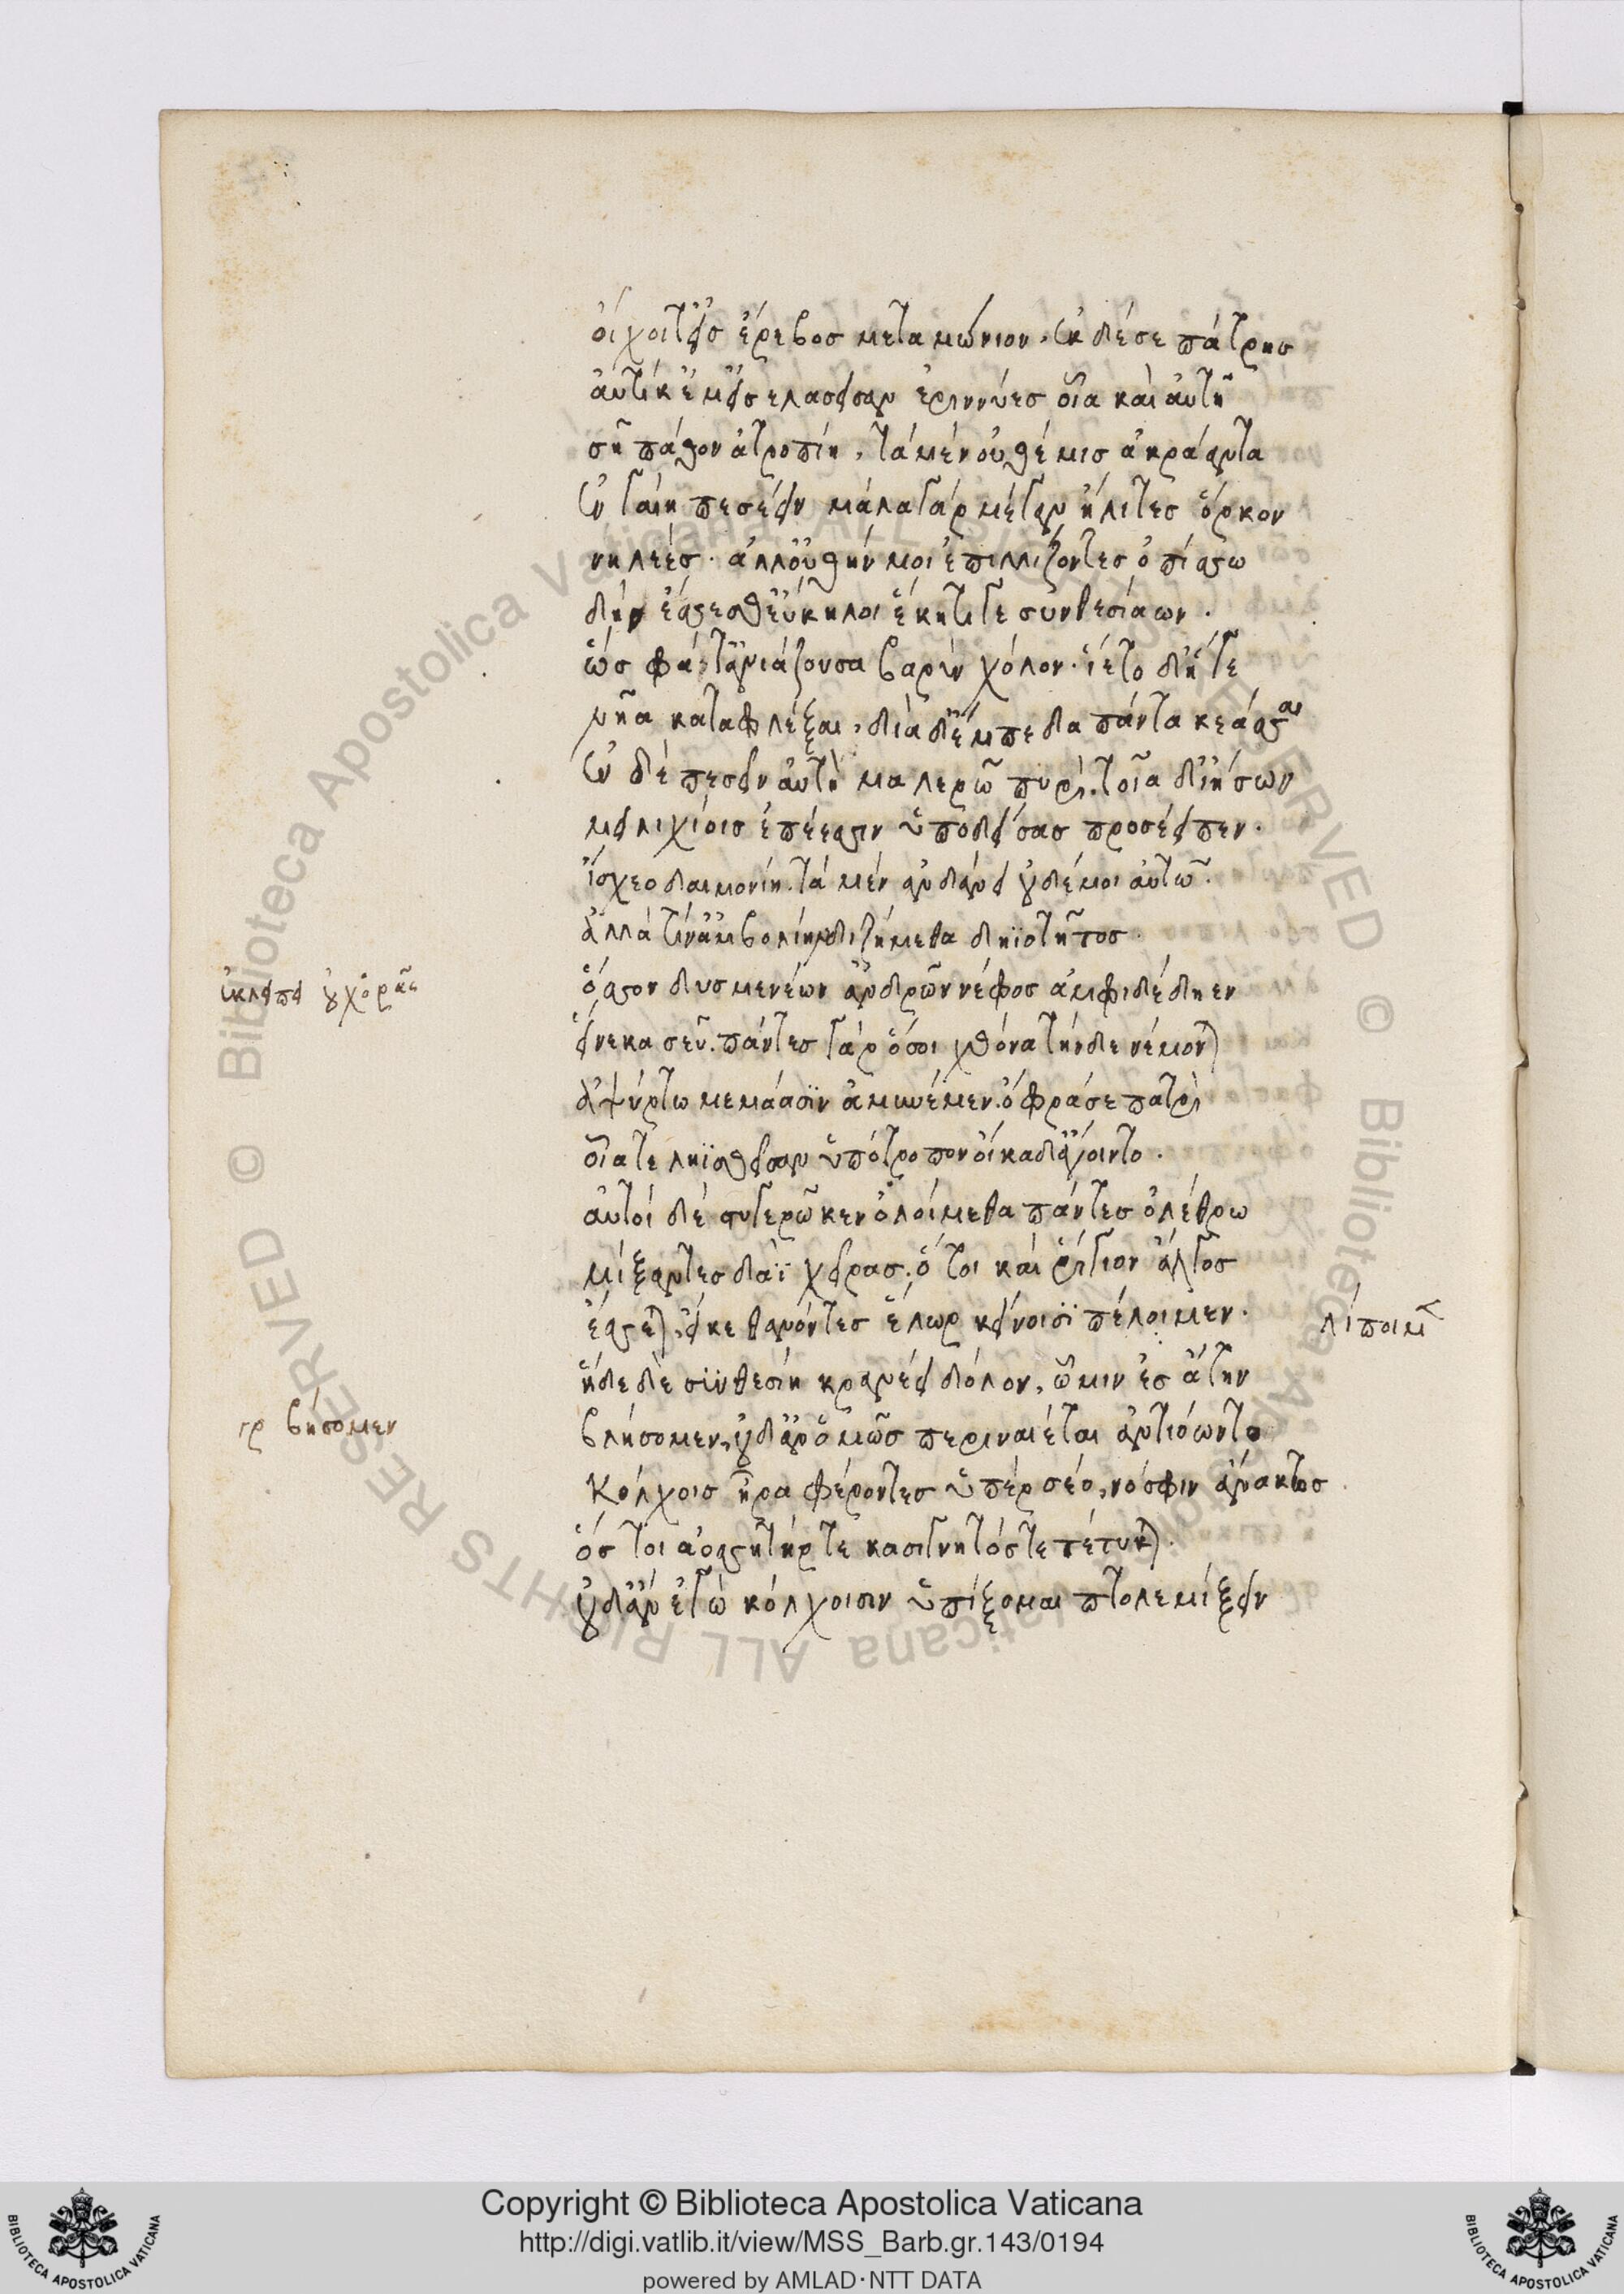 οἴχοιτ' εἰς ἔρεβος μεταμώνιον. ἐκ δέ σε πάτρης
αὐτίκ' ἐμαὶ σ' ελάσειαν ἐριννύες οἷα καὶ αὐτὴ
σῆ πάθον ἀτροπίη. τὰ μὲν οὐ θέμις ἀκράαντα
ἐν γαίη πεσέειν μάλα γὰρ μέγαν ἤλιτες ὅρκον
νηλεές. ἀλλ' οὔ θήν μοι ἐπιλλίζοντες ὀπίσσω
δὴν ἔσσεσθ' εὔκηλοι ἕκητί γε συνθεσιάων.
ὣς φάτ' ἀνιάζουσα βαρὺν χόλον. ἵετο δ' ἥγε
νῆα καταφλέξαι, διά δ' ἔμπεδα πάντα κεάσσαι
ἐν δὲ πεσεῖν αὐτὴ μαλερῶ πυρί. τοῖα δ' ἰήσων
μειλιχίοις ἐπέεσσιν ὑποδείσας προσέειπεν.
ἴσχεο δαιμονίη. τὰ μὲν ἁνδάνει οὐδέ μοι αὐτῶ.
ἀλλά τιν' ἀμβολίην διζήμεθα δηϊοτῆτος
ὅσσον δυσμενέων ἀνδρῶν νέφος ἀμφιδέδηεν
εἵνεκα σεῦ. πάντες γὰρ ὅσοι χθόνα τήνδε νέμονται
ἀψύρτω μεμάασιν ἀμυνέμεν. ὄφρα σε πατρὶ
οἷά τε ληϊσθεῖσαν ὑπότροπον οἴκαδ' ἄγοιντο.
αὐτοὶ δὲ στυγερῶ κεν ὀλοίμεθα πάντες ὀλέθρω
μίξαντες δαῒ χεῖρας. ὅ τοι καὶ ῥίγιον ἄλγος
ἔσσεται, εἴ κε θανόντες ἕλωρ κείνοισι πέλοιμεν.
λίποιμεν
ἥδε δὲ συνθεσίη κρανέει δόλον, ὧ μιν ἐς ἄτην
βλήσομεν, οὐδ' ἂν ὁμῶς περιναιέται ἀντιόωντο
γρ βήσομεν
Κόλχοις ἦρα φέροντες ὑπὲρ σέο, νόσφιν ἄνακτος
ὅς τοι ἀοσσητήρ τε κασίγνητός τε τέτυκται.
οὐδ' ἂν ἐγὼ κόλχοισιν ὑπείξομαι πτολεμίξειν